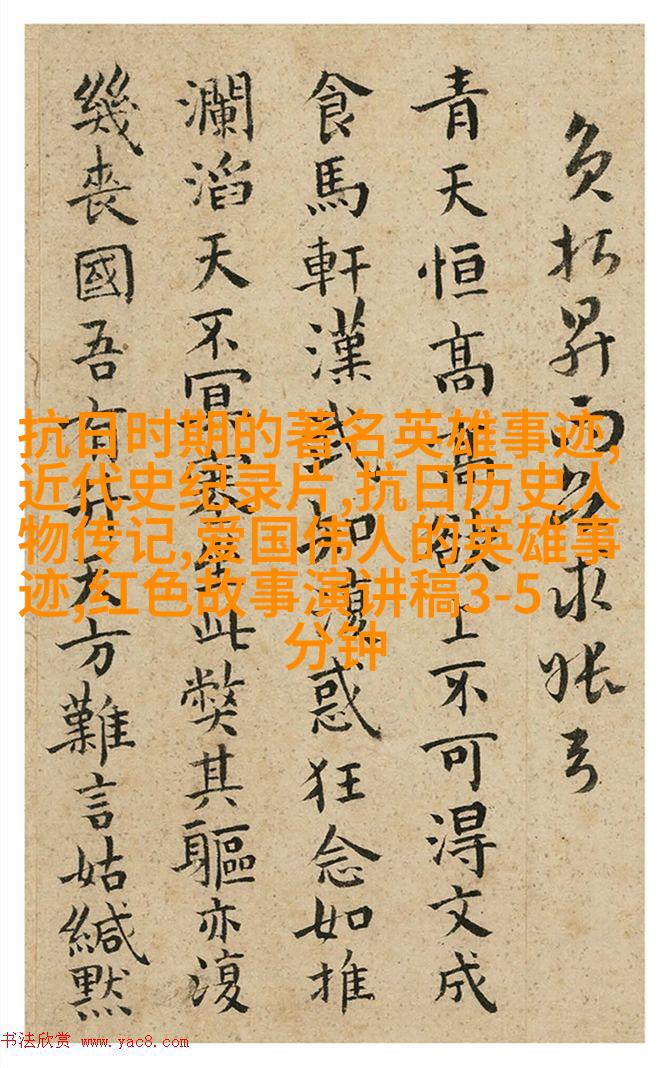 负 昇而 求
青天恒高高 上不可得文成
食馬軒漢武如復惑狂念如推
瀾滔天不冥塞 此弊其軀亦復
幾喪國吾有升天方難言姑緘默
抗日时期的著名英雄事迹,
近代史纪录片,抗日历史人
物传记,爱国伟人的英雄事
迹,红色故事演讲稿3-5
分钟
书法欣赏 www.yac8.com